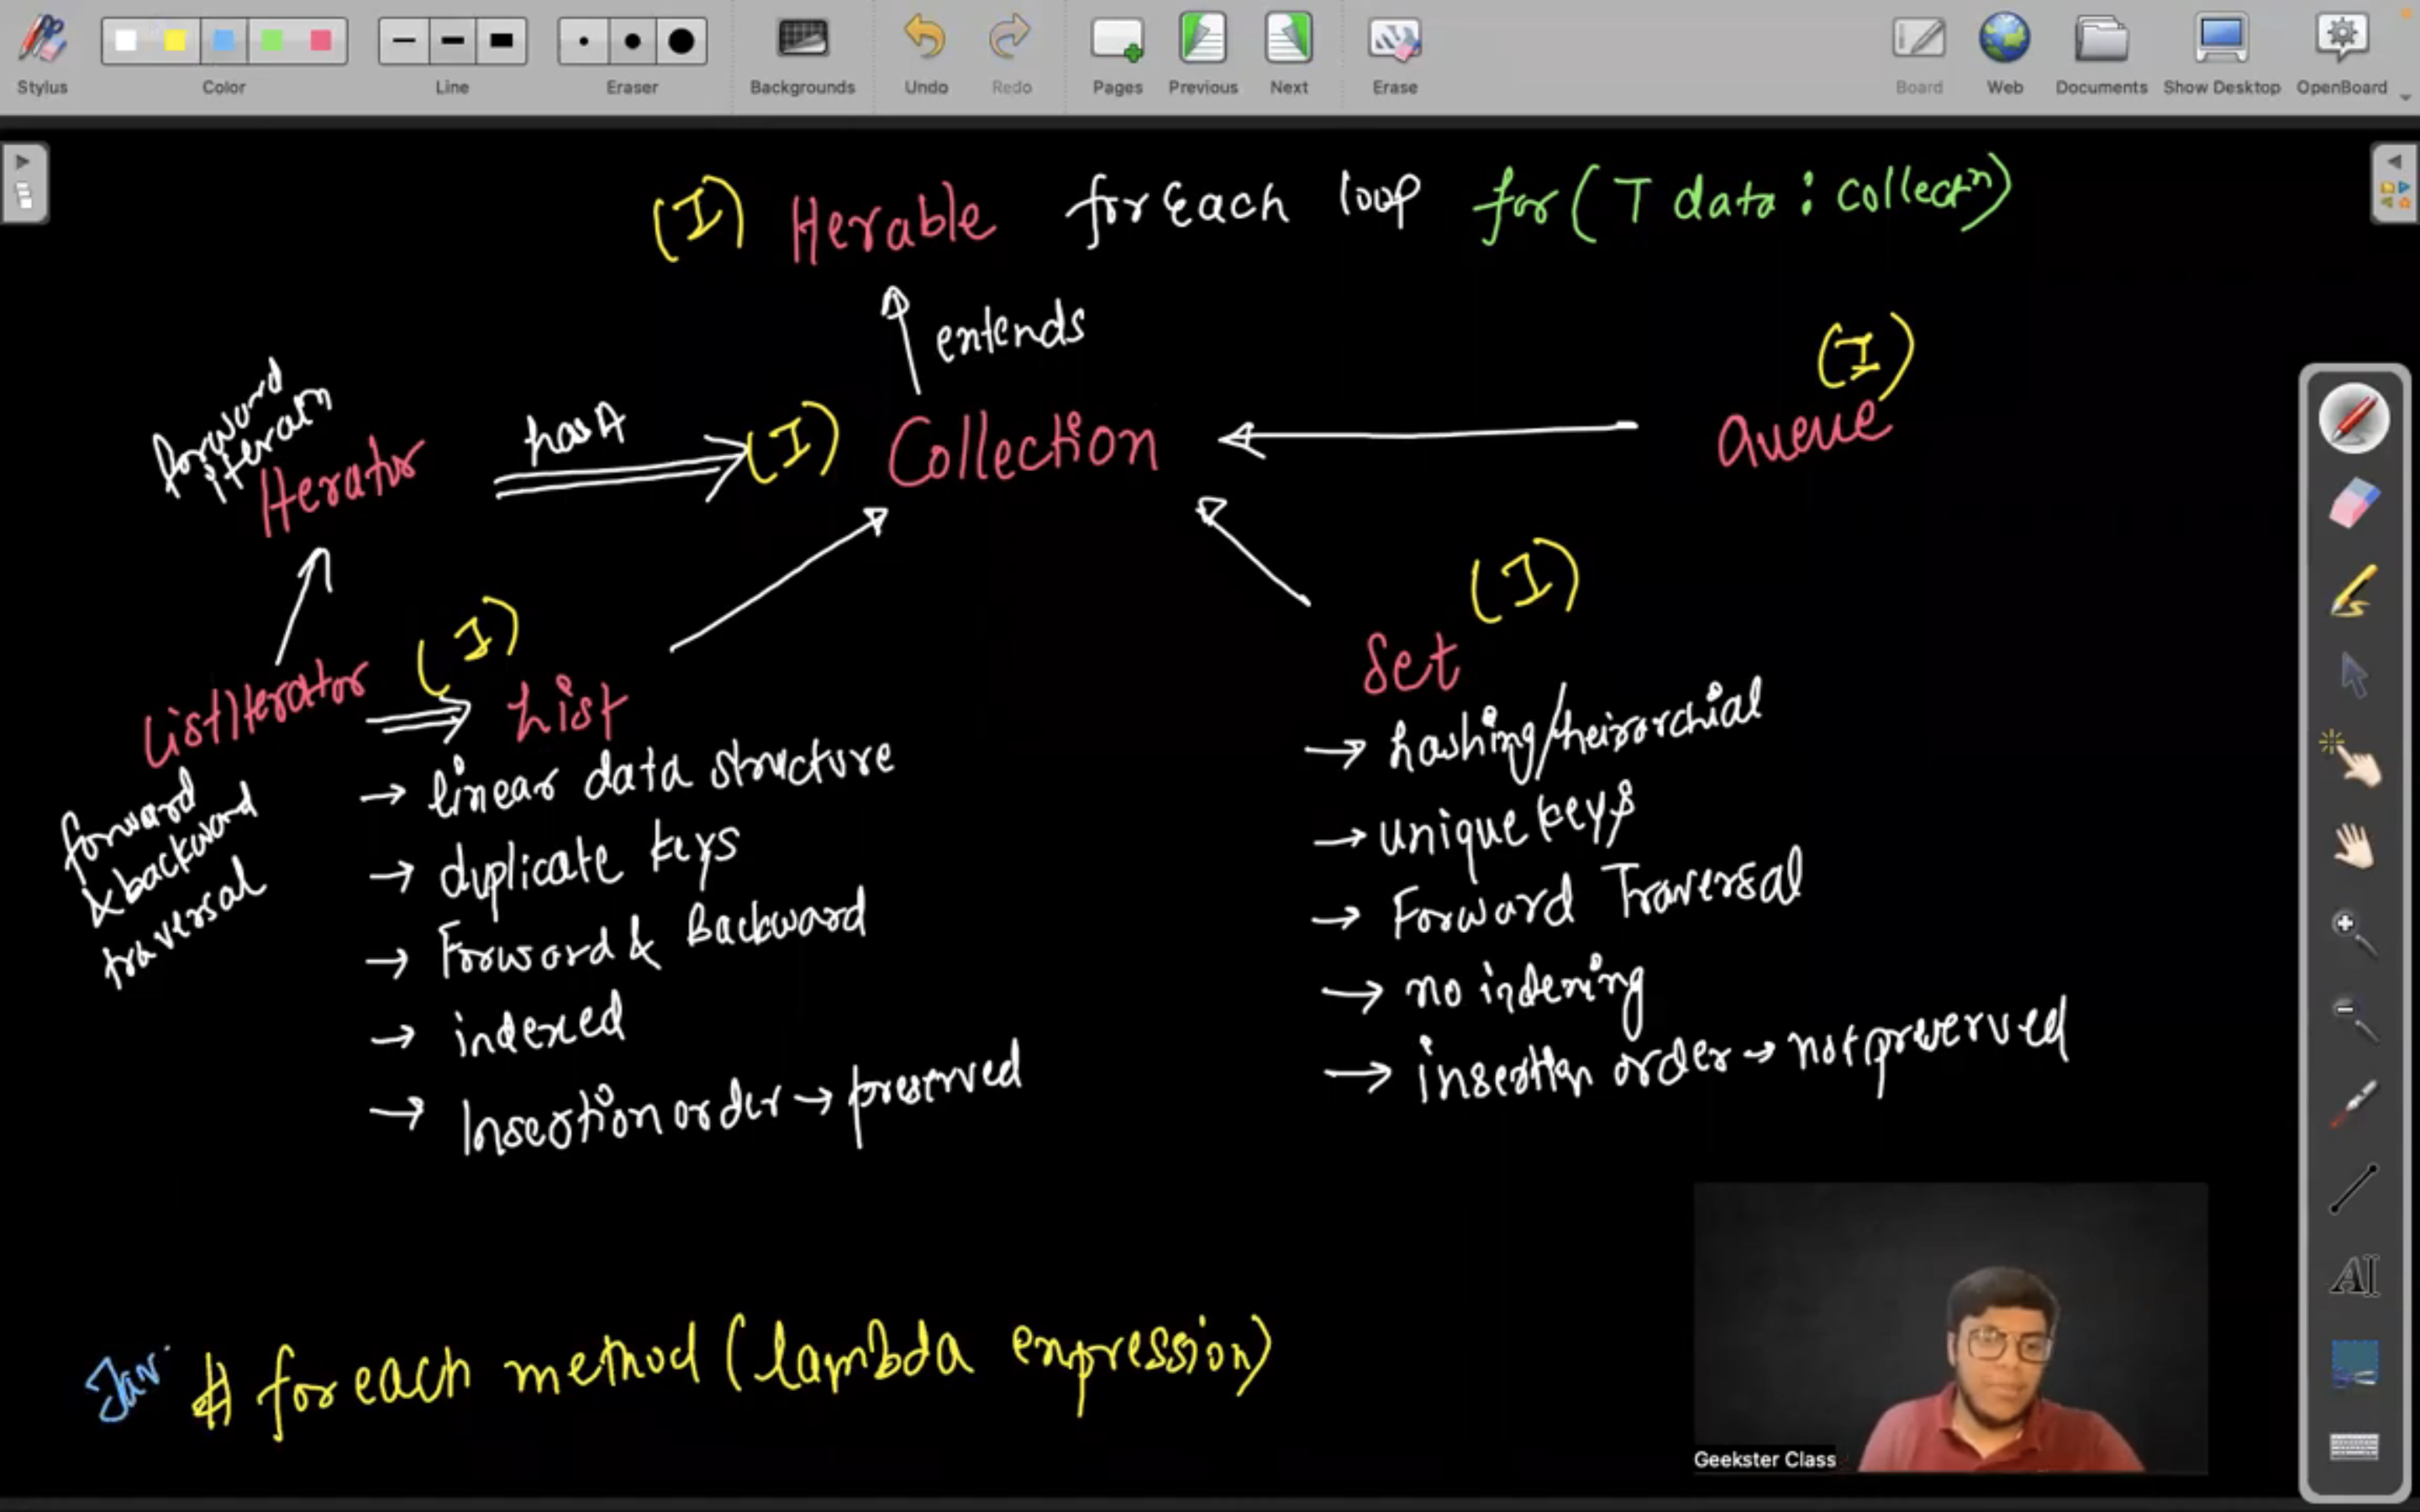 Stylus
Color
Line
Eraser
Backgrounds
Undo
Redo
Pages
Previous
Next
Erase
Board
Web
Documents
Show Desktop
OpenBoard
(I) Iterable forEach loop for(T data : collectn)
extends
(I)
Queue
forward
iteratn
Iterator
hasA
(I) Collection
(I)
ListIterator
List
forward
& backward
traversal
→ linear data structure
→ duplicate keys
→ Forward & Backward
→ indexed
→ Insertion order → preserved
(I)
Set
→ hashing/heirarchial
→ unique keys
→ Forward Traversal
→ no indexing
→ insertion order → not preverved
Jav
# for each method (lambda expression)
Geekster Class
AI